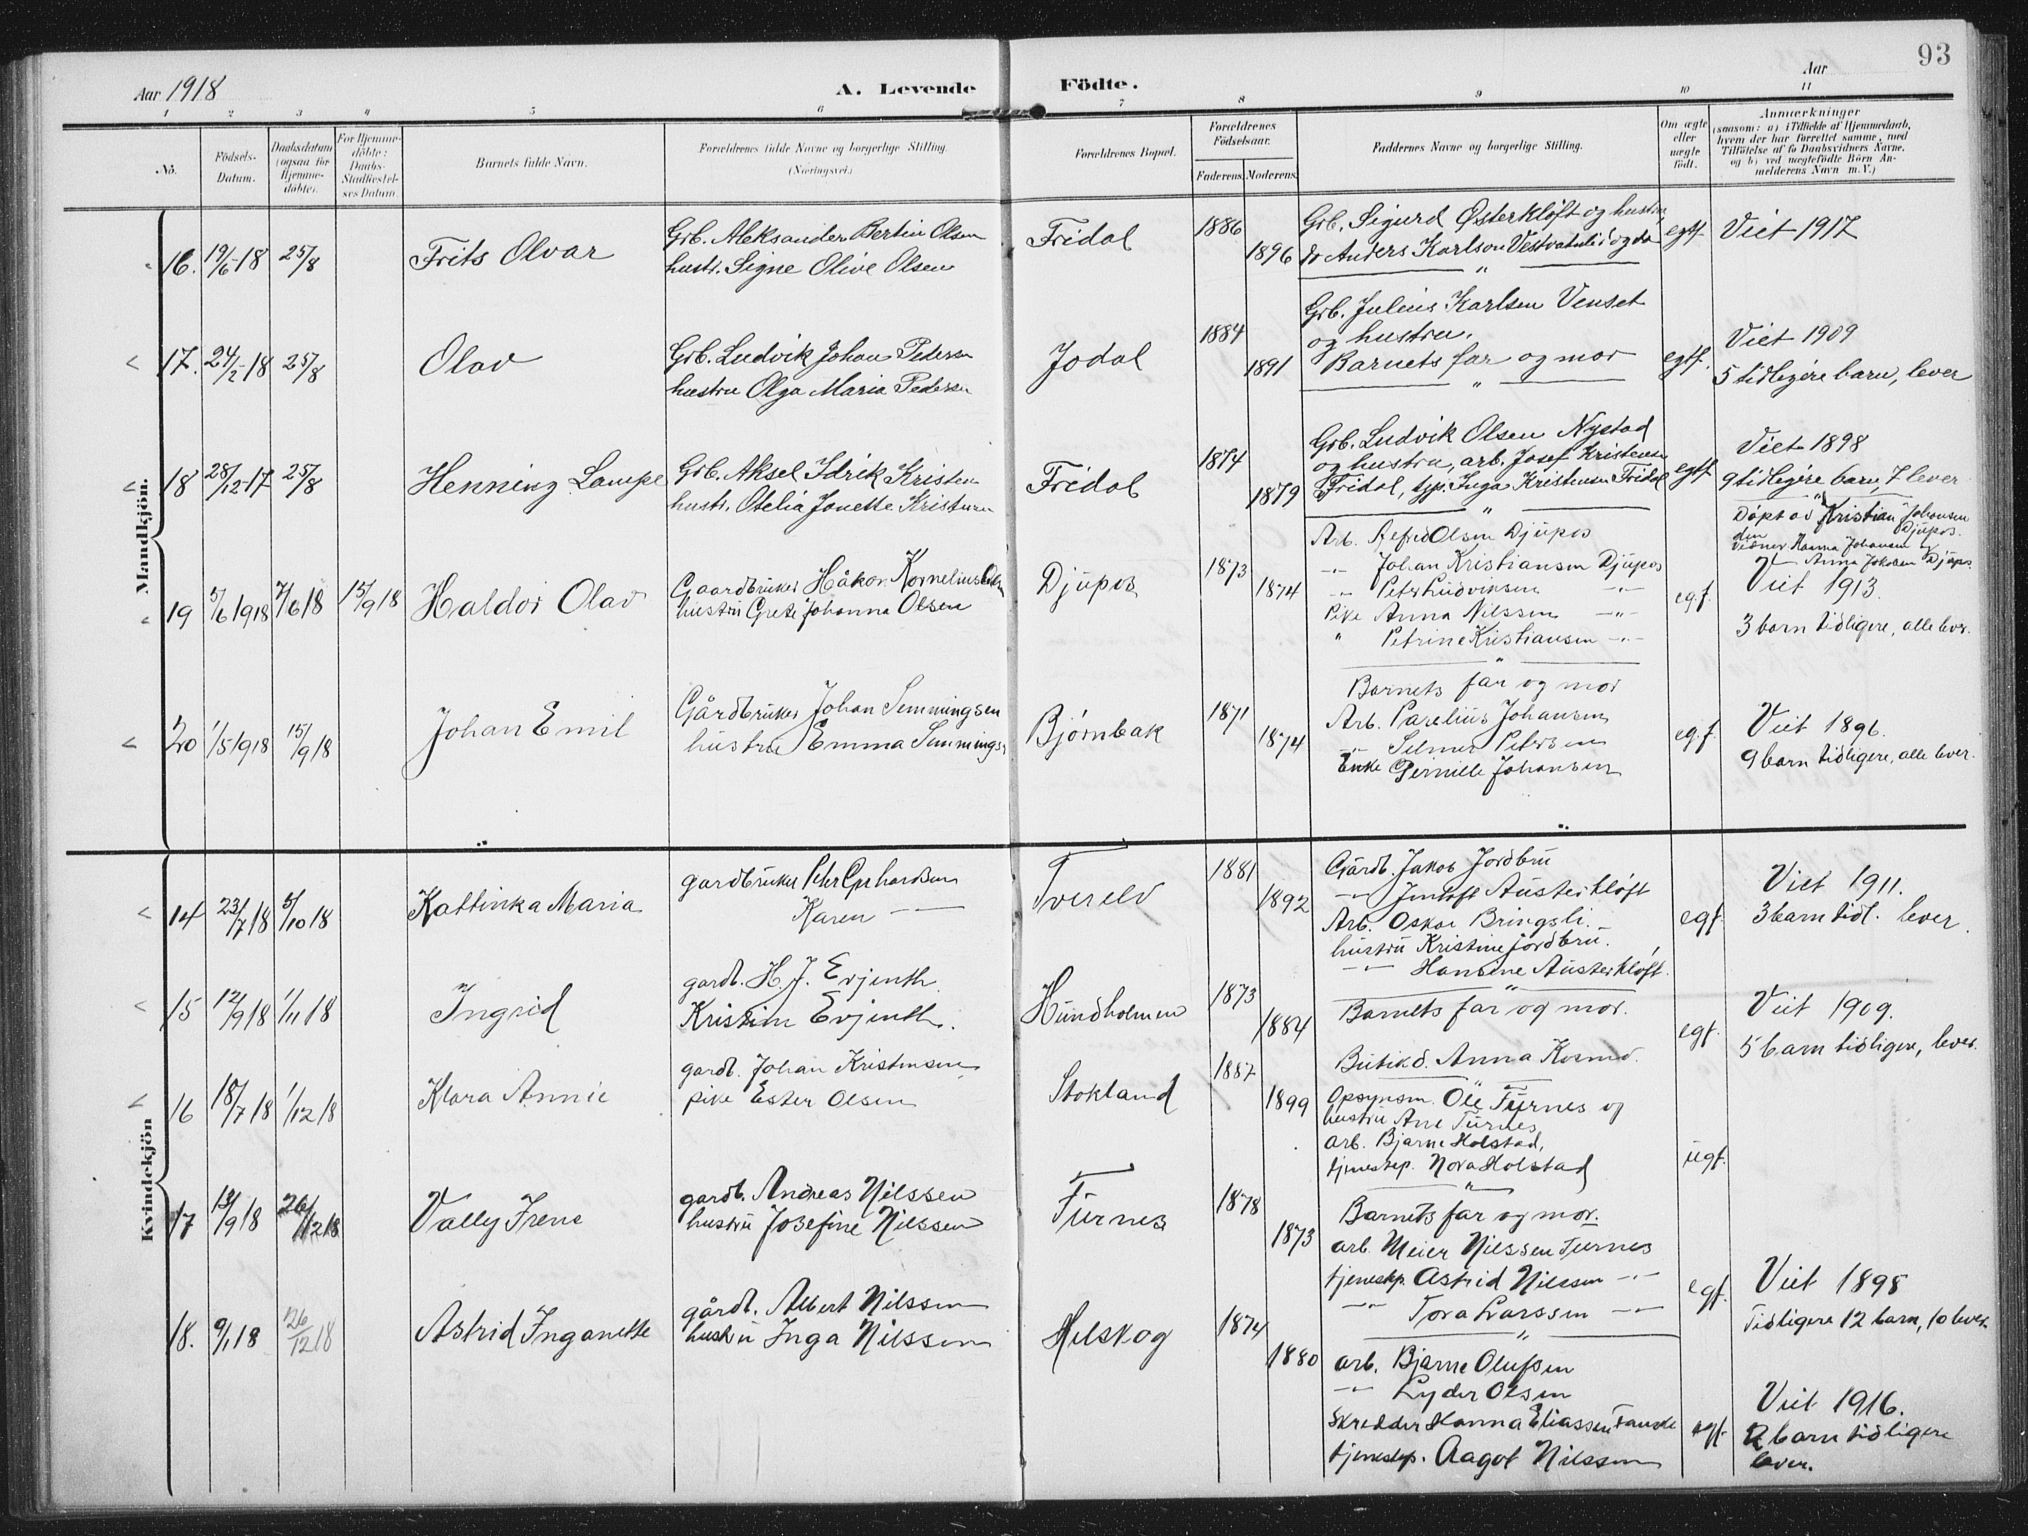 93
Aar 1918
A. Levende Födte.
Aar
1 2 3 4 5 6 7 8 9 10 11
No.
Födsels-Datum.
Daabsdatum (ogsaa for Hjemmedöbte).
For Hjemmedöbte: Daabs Stadfæstelses Datum.
Barnets fulde Navn.
Forældrenes fulde Navne og borgerlige Stilling. (Næringsvei.)
Forældrenes Bopæl.
Forældrenes Födselsaar.
Faderens. Moderens.
Faddernes Navne og borgerlige Stilling.
Om ægte eller uægte födt.
Anmærkninger
(saasom: a) i Tilfælde af Hjemmedaab, hvem der har forrettet samme, med Tilföielse af to Daabsvidners Navne. og b) ved uægtefödte Börn Anmelderens Navn m. V.)
Mandkjön.
16. 19/6-18 25/8 Frits Olvar
Grb. Aleksander Bertin Olsen
hustr. Signe Olive Olsen
Fridal 1886 1896
Grb. Sigurd Østerkløft og hustru
do Anders Karlson Vestvatnlid og do
egtf. Viet 1917
17. 24/2-18 25/8 Olav
Grb. Ludvik Johan Pedersen
hustru Olga Maria Pedersen
Jodal 1884 1891
Grb. Julius Karlsen Venset
og hustru.
Barnets far og mor
egtf. Viet 1909
5 tidligere barn, lever
18 28/12-17 25/8 Henning Lampe
Grb. Aksel Idrik Kristen
hustr. Otelia Jonette Kristensen
Fridal 1874 1879
Grb. Ludvik Olsen Nystad
og hustru, arb. Josef Kristensen
Fridal, tjp. Inga Kristensen Fridal
egtf Viet 1898
9 tidligere barn, 7 lever
19 5/6 1918 7/6 18 15/9 18 Haldor Olav
Gaardbruker Håkon Kornelius Olsen
hustru Grete Johanna Olsen
Djupos 1873 1874
Arb. Alfred Olsen Djupos
-"- Johan Kristiansen Djupos
-"- Peter Ludviksen -"-
Pike Anna Nilssen -"-
" Petrine Kristiansen -"-
eg.f.
Döpt av Kristian Johansen
Djupos.
Vidner Hanna Johansen og
Anna Jakobsen Djupos
Viet 1913.
3 barn tidligere, alle lever.
20 1/5 1918 15/9 18 Johan Emil
Gårdbruker Johan Semmingsen
hustru Emma Semmingsen
Bjørnbak 1871 1874
Barnets far og mor
Arb. Parelius Johansen
-"- Selmer Petersen
Enke Pernille Johansen
eg.f. Viet 1896.
9 barn tidligere, alle lever.
Kvindekjön
14 23/7 18 5/10 18 Kattinka Maria
gardbruker Peter Gerhardsen
Karen -"-
Tverelv 1881 1892
Gårdb. Jakob Jordbru
-"- Jentoft Austerkløft
Arb. Oskar Bringsli.
hustru Kristine Jordbru.
-"- Hansine Austerkløft.
egf. Viet 1911.
3 barn tidl. lever.
15 12/9 18 1/11 18 Ingrid
gardb. H. J. Evjenth
Kristine Evjenth.
Hundholmen 1873 1884
Barnets far og mor.
egf. Viet 1909.
5 barn tidligere, lever.
16 18/7 18 1/12 18 Klara Annie
gardb. Johan Kristensen
pike Ester Olsen
Stokland 1887 1899
Butikd. Anna Kosmo.
Opsynsm. Ole Furnes og
hustru Ane Furnes
arb. Bjarne Holstad,
tjenestep. Nora Holstad
uegf.
17 13/9 18 26/12 18 Vally Irene
gardb. Andreas Nilssen
hustru Josefine Nilssen
Furnes 1878 1873
Barnets far og mor.
arb. Meier Nilssen Furnes
tjenestep. Astrid Nilssen -"-
-"- Tora Larssen -"-
egf. Viet 1898
Tidligere 12 barn, 10 lever
18. 9/1 18 26/12 18 Astrid Inganette
gårdb. Albert Nilssen
hustru Inga Nilssen
Helskog 1874 1880
arb. Bjarne Olufsen
-"- Lyder Olsen
Skredder Hanna Eliassen Fauske
tjenestep. Aagot Nilssen
egf. Viet 1916.
2 barn tidligere
lever.